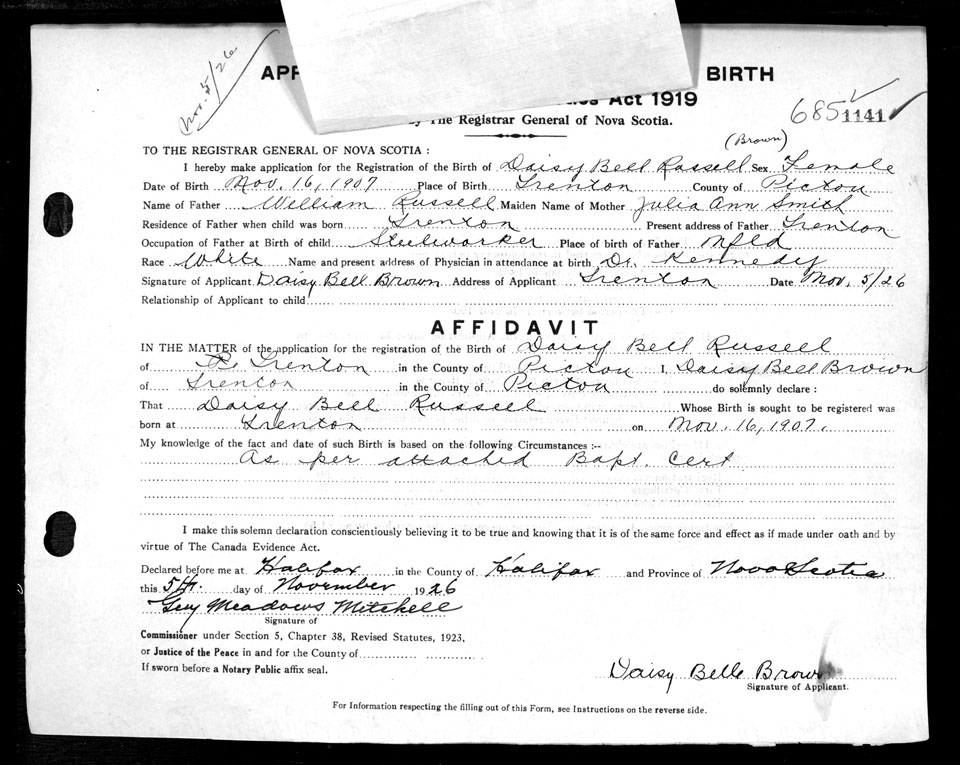 Nov. 5/26
BIRTH
Act 1919
The Registrar General of Nova Scotia.
685 1141
(Brown)
TO THE REGISTRAR GENERAL OF NOVA SCOTIA :
I hereby make application for the Registration of the Birth of Daisy Bell Russell Sex Female
Date of Birth Nov. 16, 1907 Place of Birth Trenton County of Pictou
Name of Father William Russell Maiden Name of Mother Julia Ann Smith
Residence of Father when child was born Trenton Present address of Father Trenton
Occupation of Father at Birth of child Steelworker Place of birth of Father Nfld
Race White Name and present address of Physician in attendance at birth Dr. Kennedy
Signature of Applicant Daisy Bell Brown Address of Applicant Trenton Date Nov. 5/26
Relationship of Applicant to child
AFFIDAVIT
IN THE MATTER of the application for the registration of the Birth of Daisy Bell Russell
of Trenton in the County of Pictou I, Daisy Bell Brown
of Trenton in the County of Pictou do solemnly declare :
That Daisy Bell Russell Whose Birth is sought to be registered was
born at Trenton on Nov. 16, 1907.
My knowledge of the fact and date of such Birth is based on the following Circumstances :--
As per attached Bapt. Cert
I make this solemn declaration conscientiously believing it to be true and knowing that it is of the same force and effect as if made under oath and by
virtue of The Canada Evidence Act.
Declared before me at Halifax in the County of Halifax and Province of Nova Scotia
this 5th. day of November 1926
Guy Meadows Mitchell
Signature of
Commissioner under Section 5, Chapter 38, Revised Statutes, 1923,
or Justice of the Peace in and for the County of
If sworn before a Notary Public affix seal.
Daisy Belle Brown
Signature of Applicant.
For Information respecting the filling out of this Form, see Instructions on the reverse side.